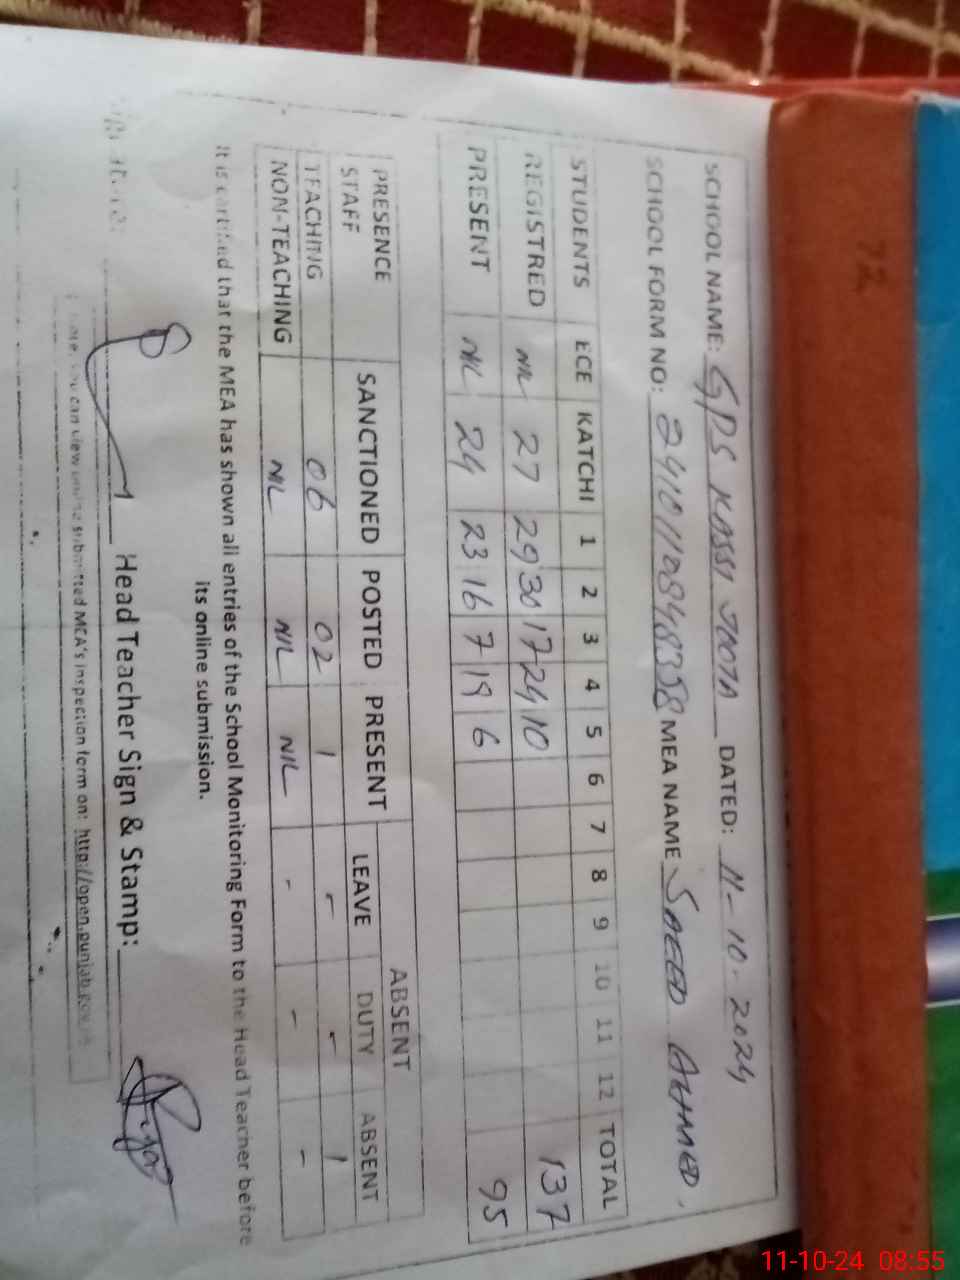 72
SCHOOL NAME: GPS KASSI JOOTA DATED: 11-10-2024
SCHOOL FORM NO: MEA NAME SAEED AHMED.
STUDENTS ECE KATCHI 1 2 3 4 5 6 7 8 9 10 11 12 TOTAL
REGISTRED NIL 27 29 30 17 24 10 137
PRESENT NIL 24 23 16 7 19 6 95
PRESENCE ABSENT
STAFF SANCTIONED POSTED PRESENT LEAVE DUTY ABSENT
TEACHING 06 02 1 - - 1
NON-TEACHING NIL NIL NIL - - -
It is certified that the MEA has shown all entries of the School Monitoring Form to the Head Teacher before
its online submission.
Head Teacher Sign & Stamp:
you can view online submitted MEA's inspection form on: http://open.punjab.gov.pk
11-10-24 08:55